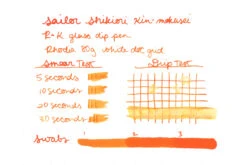 Sailor Shikiori Kin-mokusei
R-K glass dip pen
Rhodia 80g white dot grid
Smear Test Drip Test
5 seconds
10 seconds
20 seconds
30 seconds
swabs 1 2 3